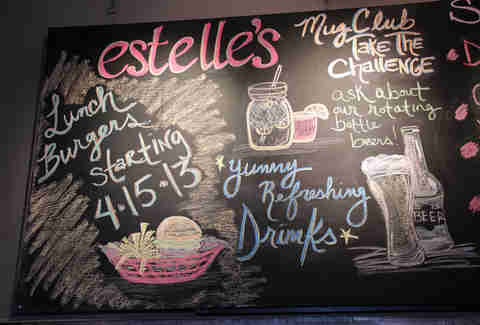 estelle's
Lunch
Burgers
Starting
4.15.13
Mug Club
Take The
Challenge
ask about
our rotating
bottle
beers!
Yummy
Refreshing
Drinks
BEER